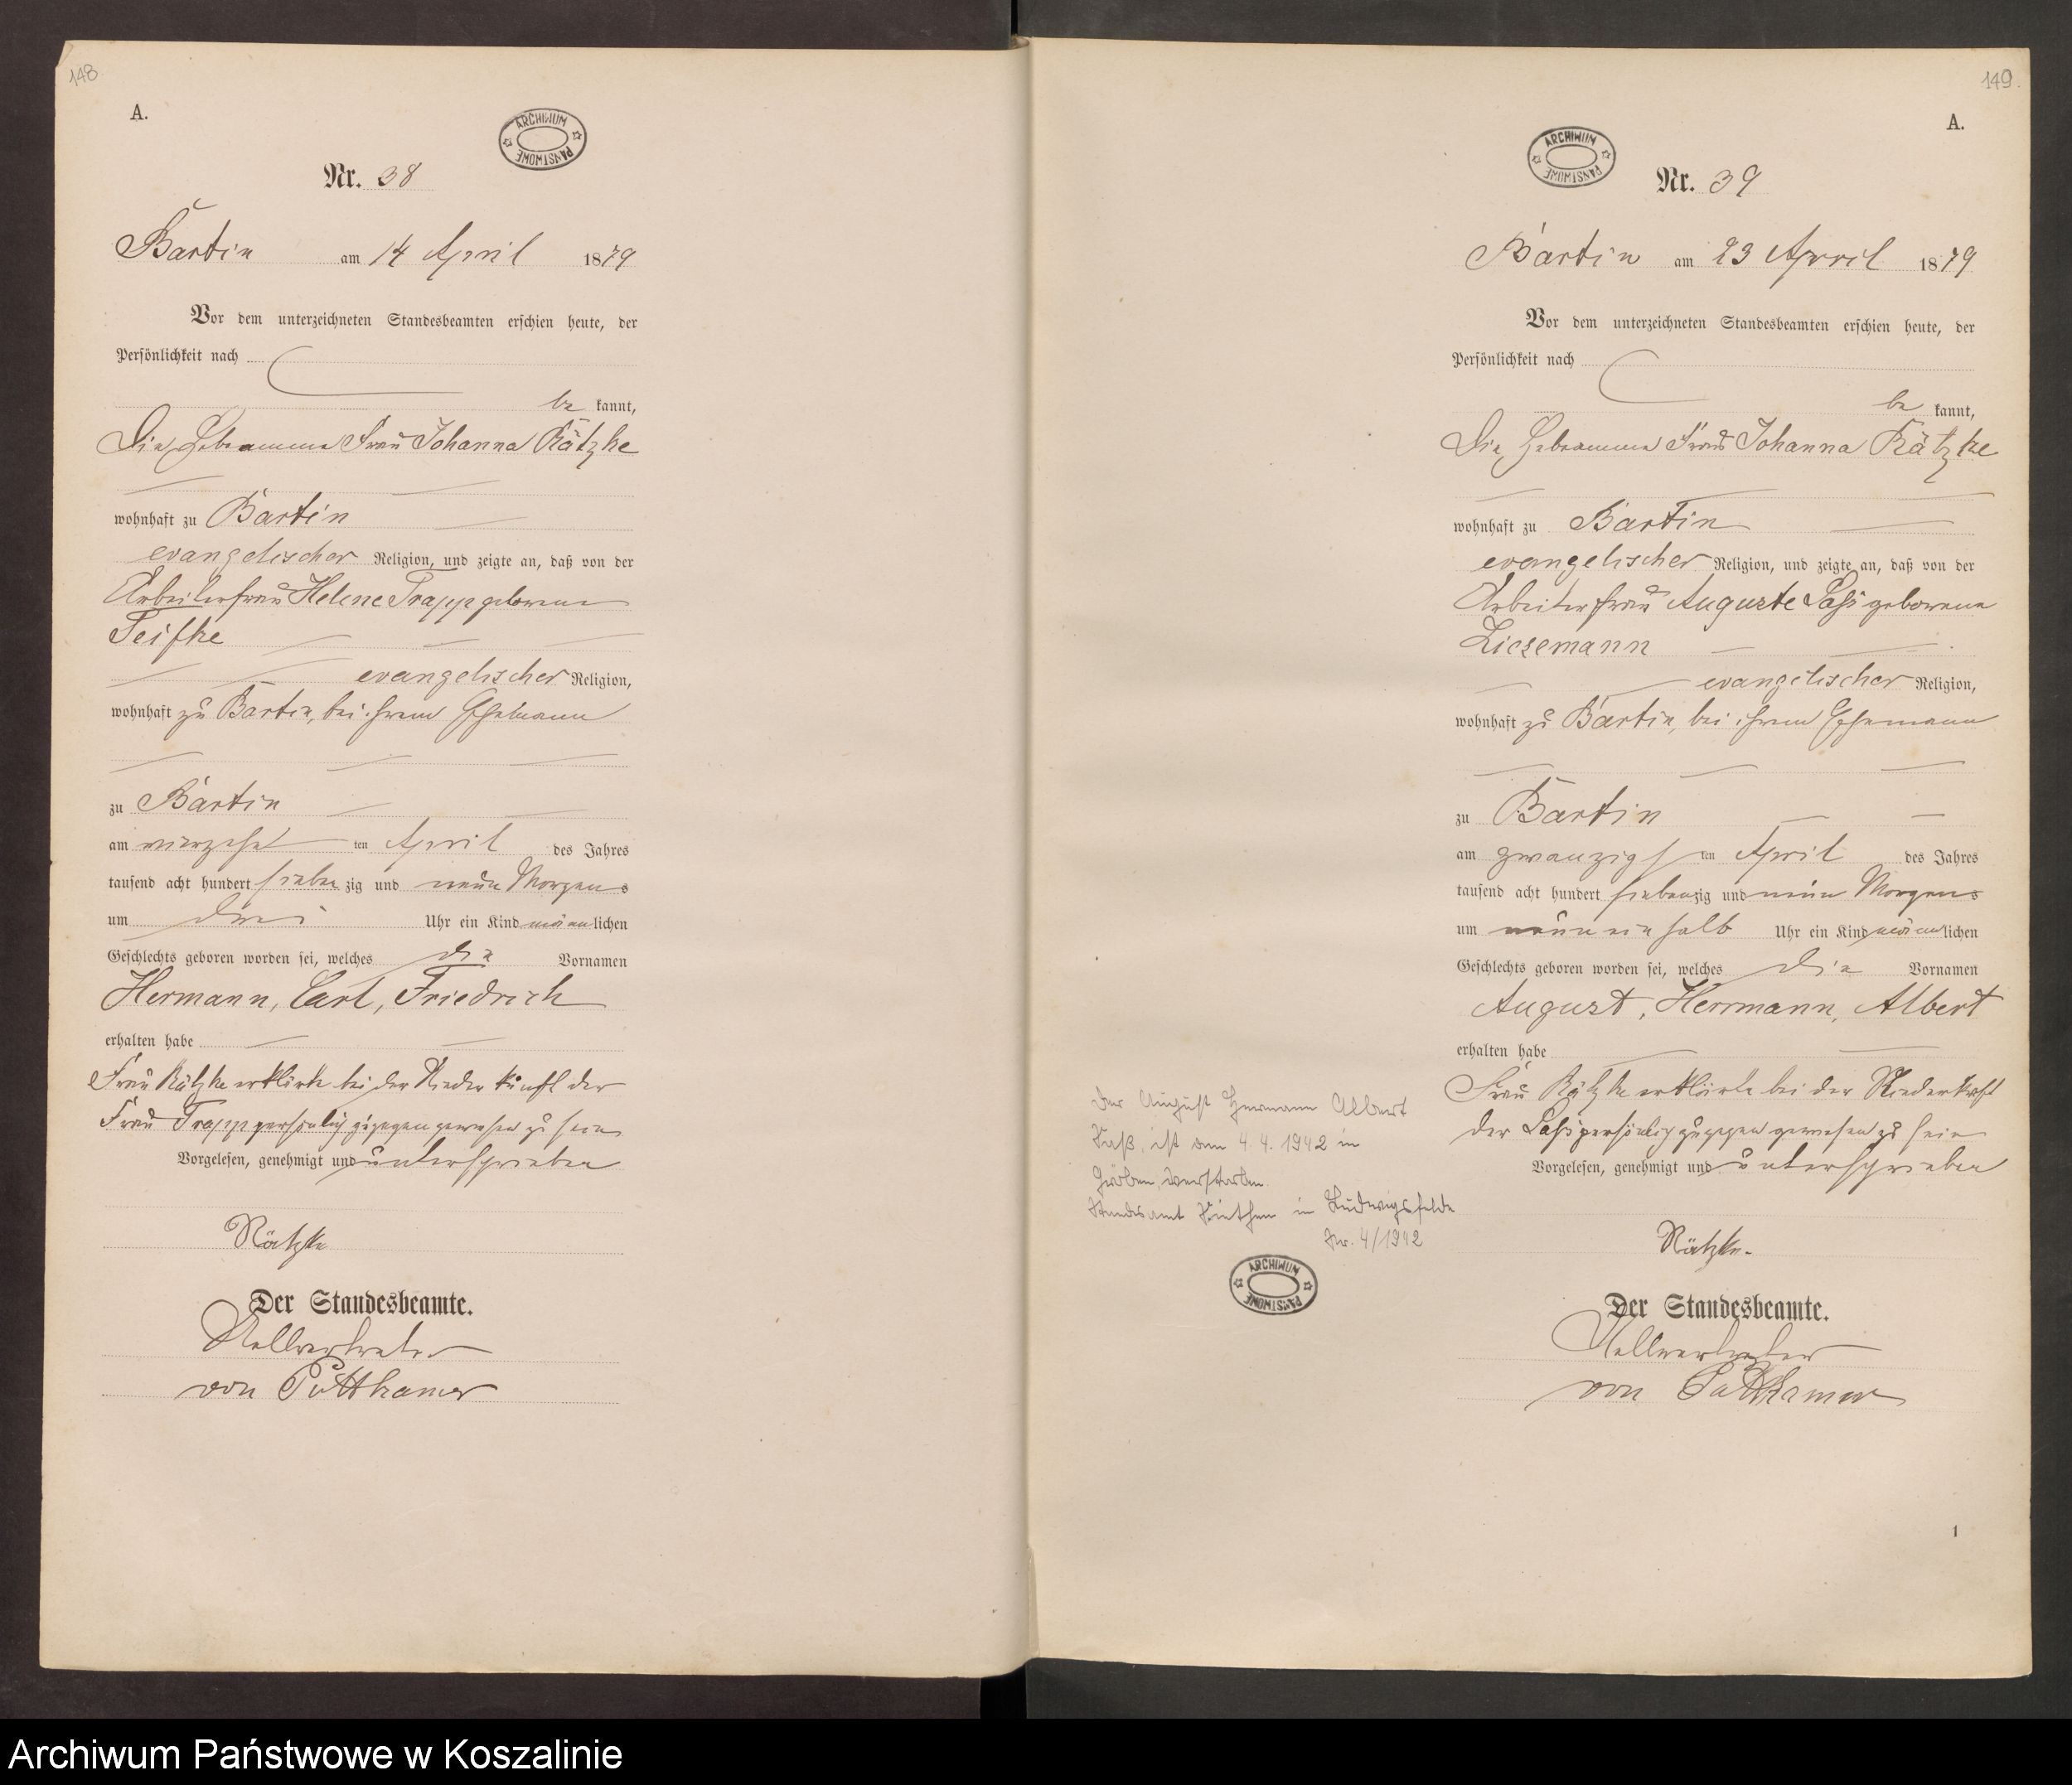 148
A.
ARCHIWUM PAŃSTWOWE
Nr. 38
Bartin am 14 April 1879
Vor dem unterzeichneten Standesbeamten erschien heute, der
Persönlichkeit nach
be kannt,
Die Hebeamme Frau Johanna Rätzke
wohnhaft zu Bartin
evangelischer Religion, und zeigte an, daß von der
Arbeiterfrau Helene Trapp geborene
Teifke
evangelischer Religion,
wohnhaft zu Bartin, bei ihrem Ehemann
zu Bartin
am vierzehn ten April des Jahres
tausend acht hundert sieben zig und neun Morgens
um drei Uhr ein Kind männlichen
Geschlechts geboren worden sei, welches die Vornamen
Hermann, Carl, Friedrich
erhalten habe
Frau Rätzke erklärte bei der Niederkunft der
Frau Trapp persönlich zugegen gewesen zu sein
Vorgelesen, genehmigt und unterschrieben
Rätzke
Der Standesbeamte.
Stellvertreter
von Puttkamer
149.
A.
ARCHIWUM PAŃSTWOWE
Nr. 39
Bartin am 23 April 1879
Vor dem unterzeichneten Standesbeamten erschien heute, der
Persönlichkeit nach
be kannt,
Die Hebeamme Frau Johanna Rätzke
wohnhaft zu Bartin
evangelischer Religion, und zeigte an, daß von der
Arbeiterfrau Auguste Laß geborene
Liesemann
evangelischer Religion,
wohnhaft zu Bartin, bei ihrem Ehemann
zu Bartin
am zwanzigs ten April des Jahres
tausend acht hundert siebenzig und neun Morgens
um neun ein halb Uhr ein Kind männlichen
Geschlechts geboren worden sei, welches die Vornamen
August, Herrmann, Albert
erhalten habe
Frau Rätzke erklärte bei der Niederkunft
der Laß persönlich zugegen gewesen zu sein
Vorgelesen, genehmigt und unterschrieben
Rätzke.
Der Standesbeamte.
Stellvertreter
von Puttkamer
Der August Hermann Albert
Laß, ist am 4. 4. 1942 in
Gröben verstorben.
Standesamt in Ludwigsfelde
Nr. 4/1942
ARCHIWUM PAŃSTWOWE
1
Archiwum Państwowe w Koszalinie